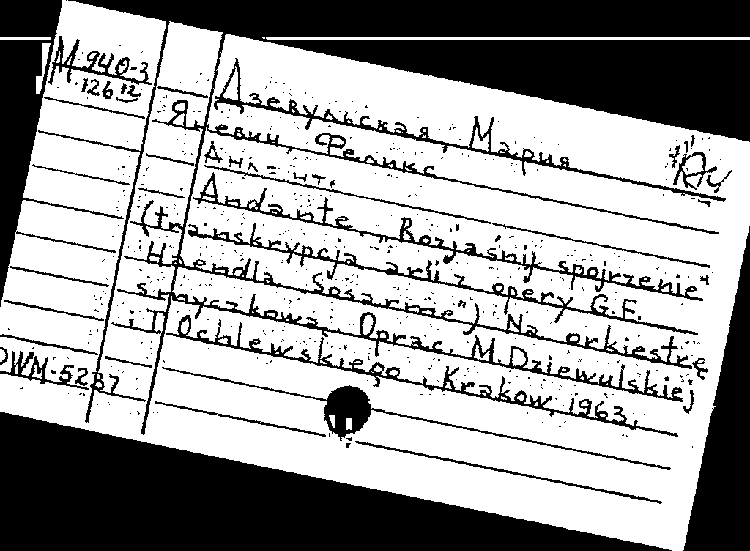 М 940-3
126 12
Дзевульская, Мария
Яневич, Феликс
Andante „Rozjaśnij spojrzenie"
(transkrypcja arii z opery G.F.
Haendla „Sosarme") Na orkiestrę
smyczkową. Oprac. M. Dziewulskiej
i T. Ochlewskiego, Krakow, 1963.
PWM-5287